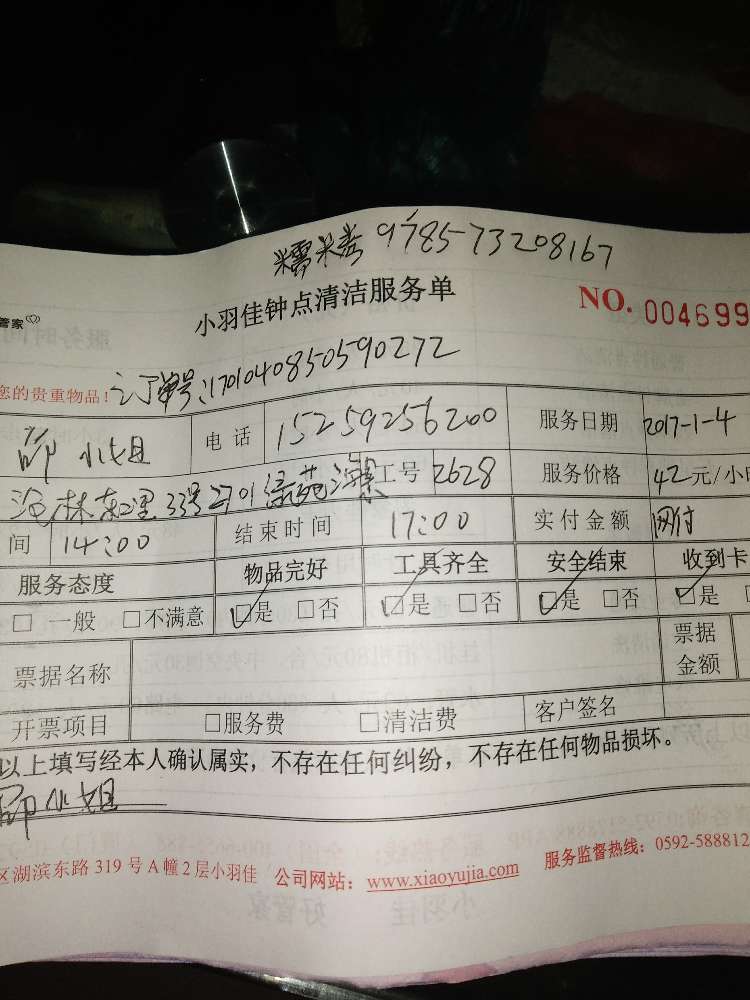 糯米券 9785732 08167
管家
小羽佳钟点清洁服务单 NO. 004699
您的贵重物品! 订单号:170104085059 0272
小姐 电话 15259256200 服务日期 2017-1-4
东里33号 工号 2628 服务价格 42元/小时
间 14:00 结束时间 17:00 实付金额 网付
服务态度 物品完好 工具齐全 安全结束 收到卡
□ 一般 □不满意 ☑是 □否 ☑是 □否 ☑是 □否 ☑是 □
票据名称 票据金额
开票项目 □服务费 □清洁费 客户签名
以上填写经本人确认属实，不存在任何纠纷，不存在任何物品损坏。
小姐
区湖滨东路 319 号 A 幢 2 层小羽佳 公司网站：www.xiaoyujia.com 服务监督热线：0592-5888812